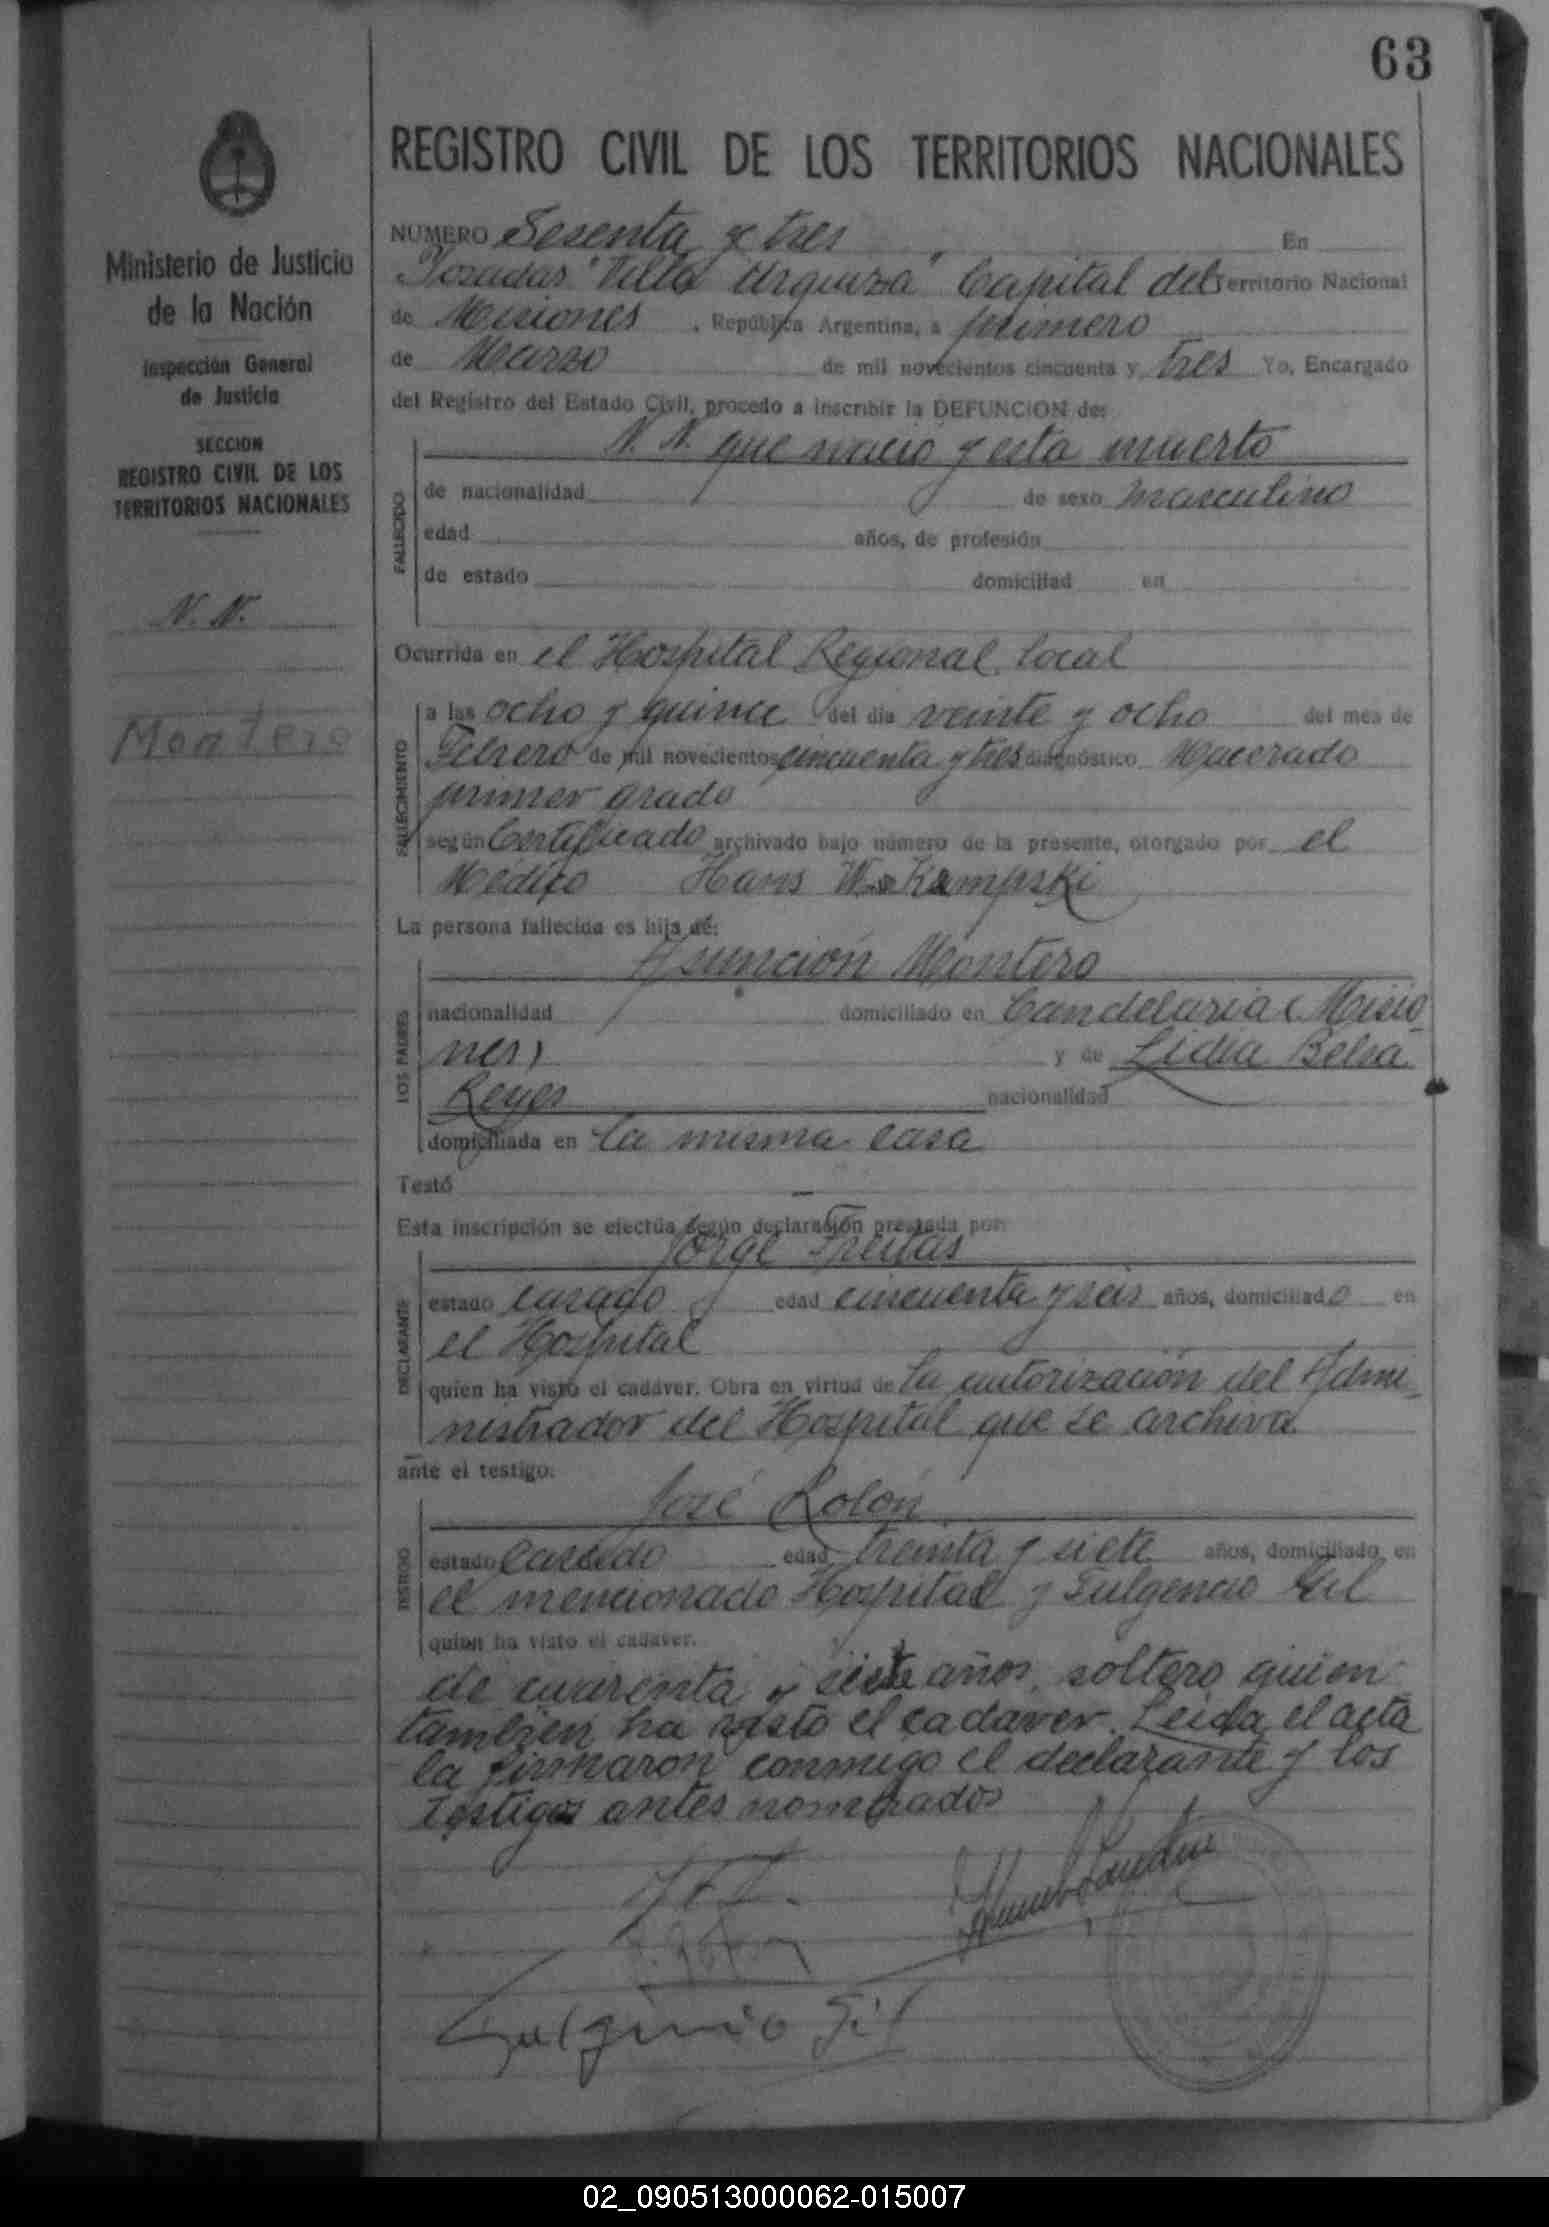 63
REGISTRO CIVIL DE LOS TERRITORIOS NACIONALES
Ministerio de Justicia
de la Nación
Inspección General
de Justicia
SECCION
REGISTRO CIVIL DE LOS
TERRITORIOS NACIONALES
N. N.
Montero
NUMERO Sesenta y tres En
Posadas "Villa Urquiza" Capital del Territorio Nacional
de Misiones, República Argentina, a primero
de Marzo de mil novecientos cincuenta y tres Yo, Encargado
del Registro del Estado Civil, procedo a inscribir la DEFUNCION de:
N. N. que nacio y esta muerto
FALLECIDO
de nacionalidad de sexo masculino
edad años, de profesión
de estado domiciliad en
Ocurrida en el Hospital Regional local
FALLECIMIENTO
a las ocho y quince del dia veinte y ocho del mes de
Febrero de mil novecientos cincuenta y tres diagnóstico Macerado
primer grado
según Certificado archivado bajo número de la presente, otorgado por el
Médico Hans W. Kampski
La persona fallecida es hija de:
Asunción Montero
LOS PADRES
nacionalidad domiciliado en Candelaria (Misio
nes) y de Lidia Belsa
Reyes nacionalidad
domiciliada en la misma casa
Testó
Esta inscripción se efectúa según declarasión prestada por:
Jorge Freitas
DECLARANTE
estado casado edad cincuenta y seis años, domiciliado en
el Hospital
quien ha visto el cadáver. Obra en virtud de la autorización del Admi-
nistrador del Hospital que se archiva
ante el testigo:
José Rolón
TESTIGO
estado casado edad treinta y siete años, domiciliado en
el mencionado Hospital y Fulgencio Gil
quien ha visto el cadaver.
de cuarenta y siete años, soltero quien
tambien ha visto el cadaver. Leida el acta
la firmaron conmigo el declarante y los
testigos antes nombrados
Fulgencio Gil
02_090513000062-015007